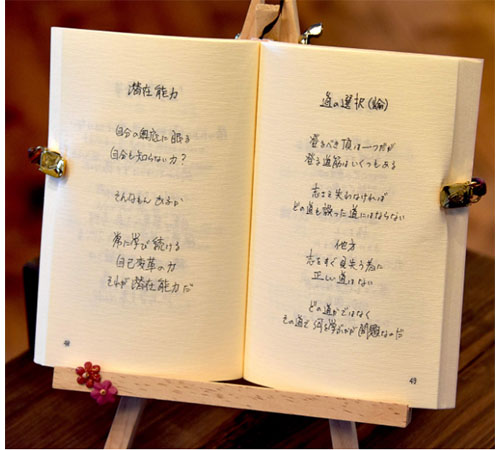 潜在能力
自分の奥底に眠る
自分も知らない力?
そんなもん あるか
常に学び続ける
自己変革の力
それが潜在能力だ
48
道の選択(論)
登るべき頂は一つだが
登る道筋はいくつもある
志さえ失わなければ
どの道も誤った道にはならない
他方
志をすぐ見失う者に
正しい道はない
どの道かではなく
その道で何を学ぶかが問題なのだ
49